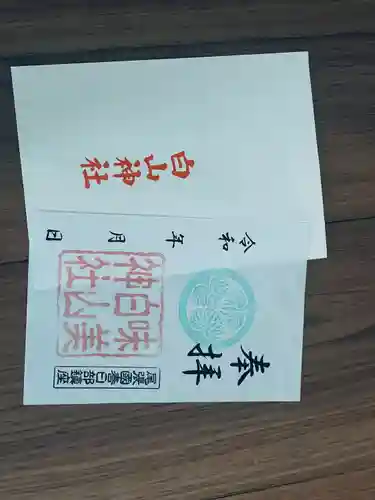 白山神社
奉拝
味美
白山
神社
尾張國春日部鎮座
令和 年 月 日